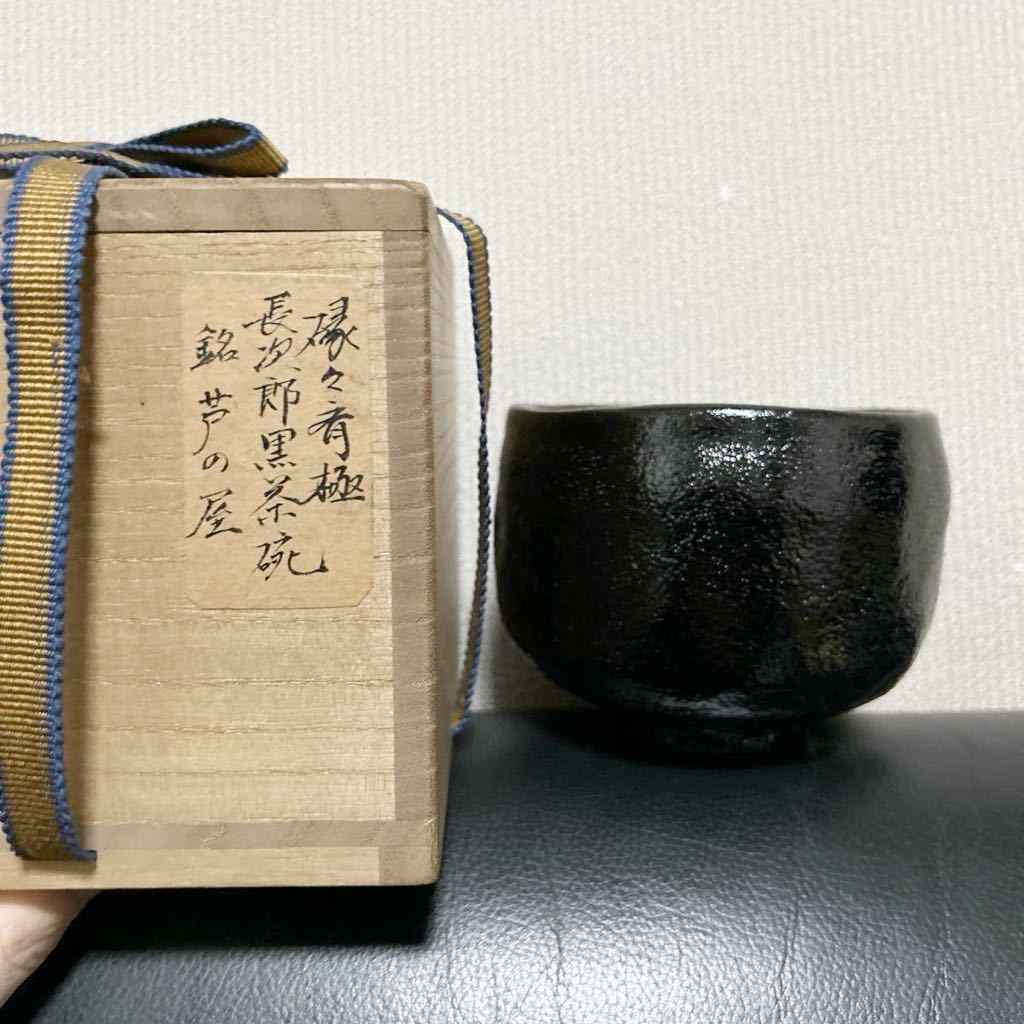 碌々斎極
長次郎黒茶碗
銘 芦の屋